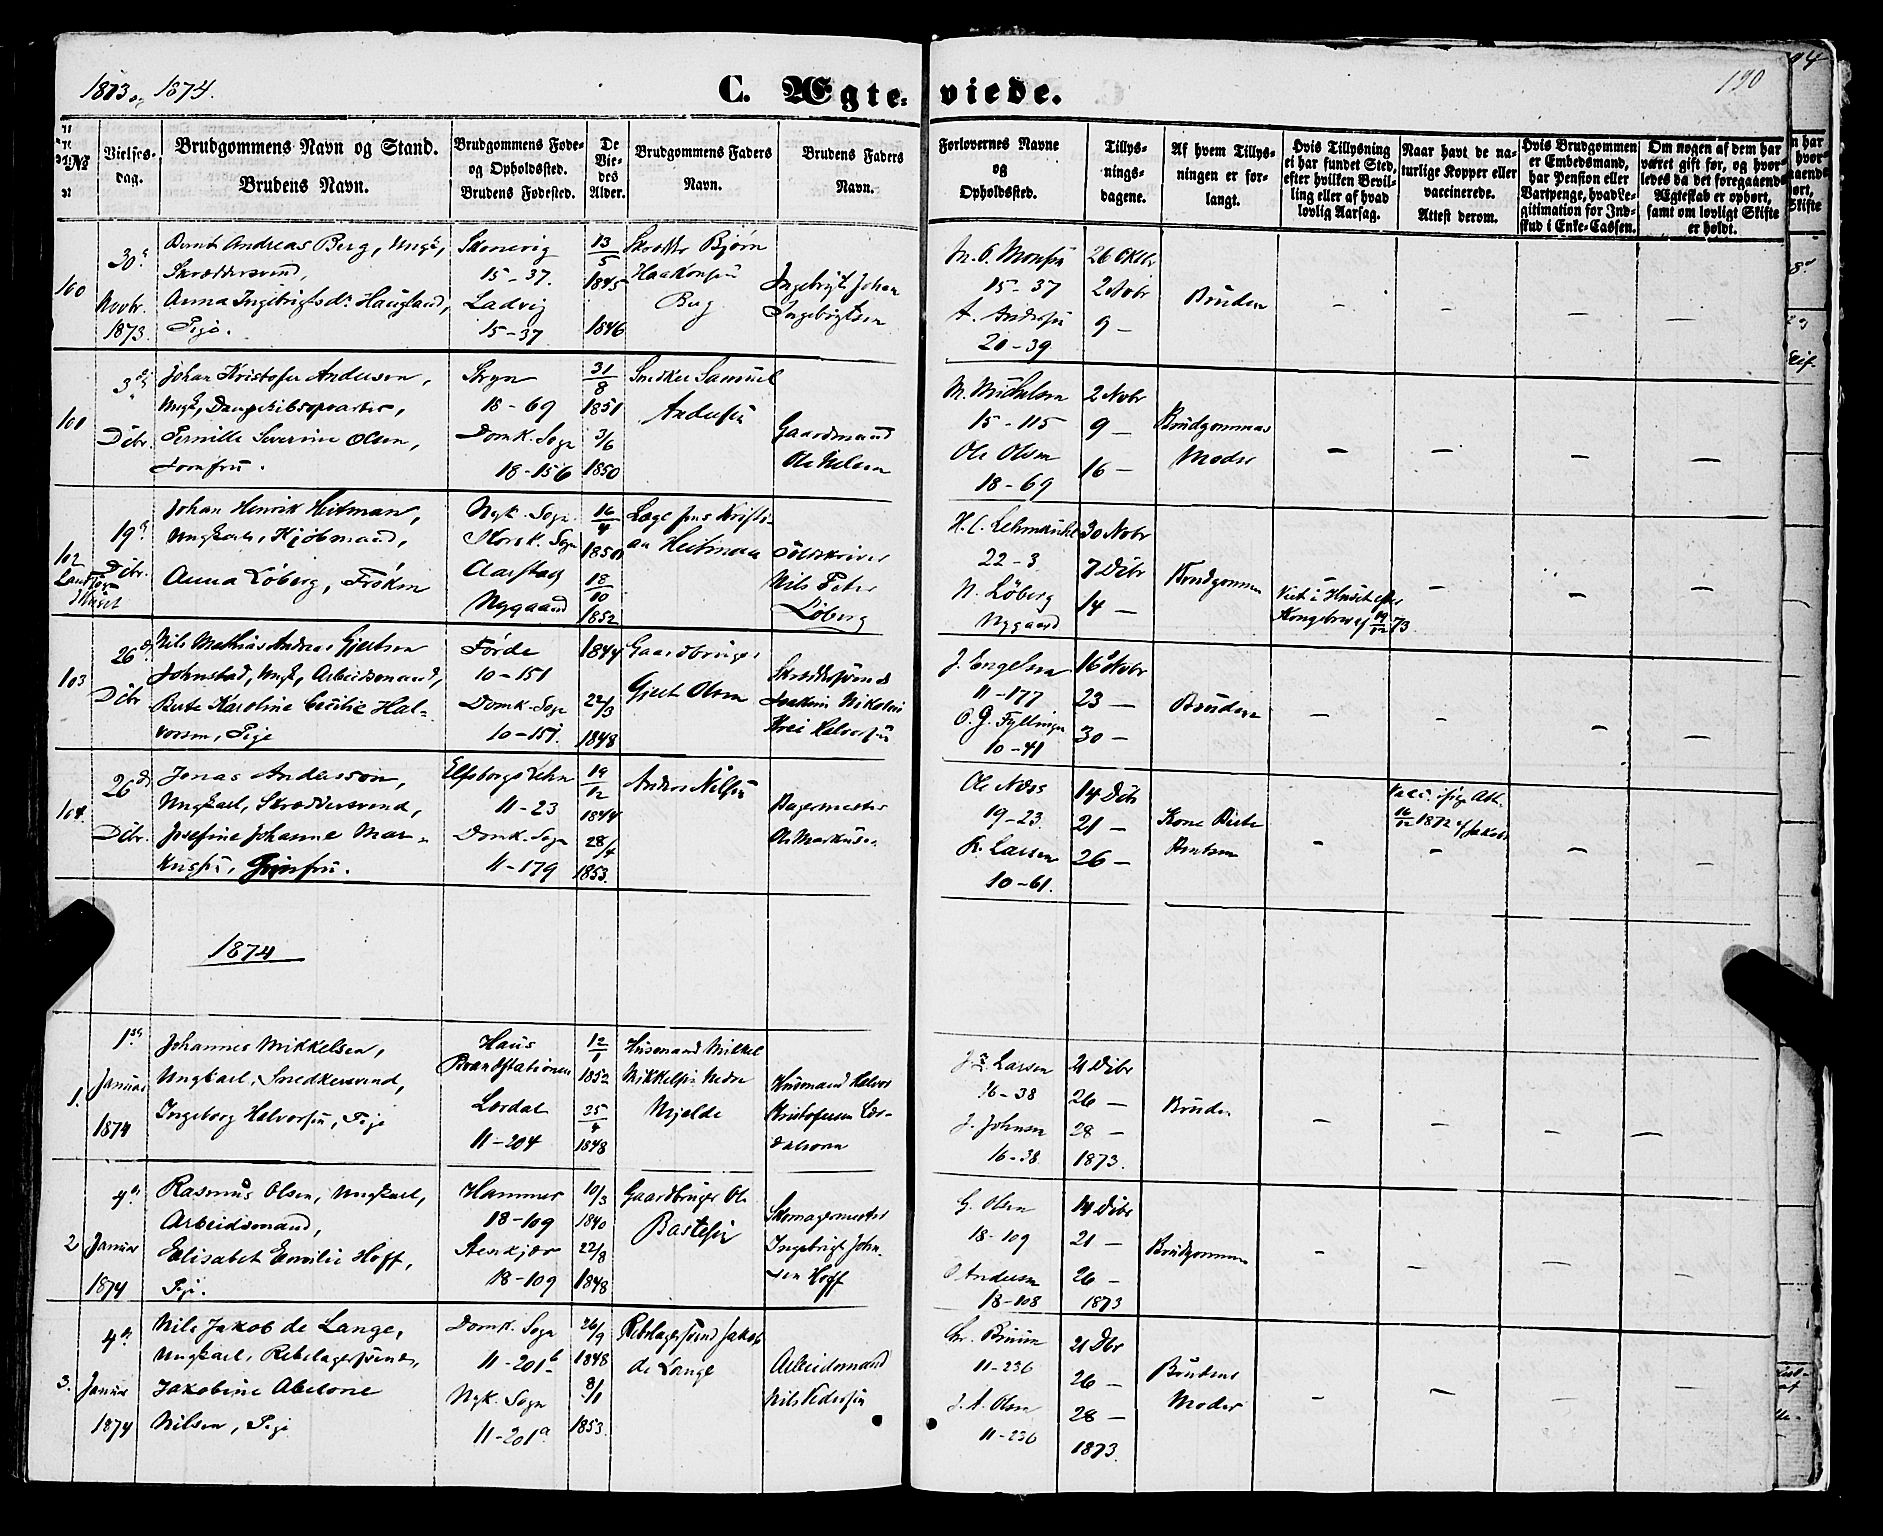 1873 og 1874.
C. Ægteviede.
190
No
Vielses-
dag.
Brudgommens Navn og Stand.
Brudens Navn.
Brudgommens Føde-
og Opholdssted.
Brudens Fødested.
De
Vie-
des
Alder.
Brudgommens Faders
Navn.
Brudens Faders
Navn.
Forlovernes Navne
og
Opholdssted.
Tillys-
nings-
dagene.
Af hvem Tillys-
ningen er for-
langt.
Hvis Tillysning
ei har fundet Sted,
efter hvilken Bevil-
ling eller af hvad
lovlig Aarsag.
Naar havt de na-
turlige Kopper eller
vaccinerede.
Attest derom.
Hvis Brudgommen
er Embedsmand,
har Pension eller
Vartpenge, hvad Le-
gitimation for Ind-
skud i Enke-Cassen.
Om nogen af dem har
været gift før, og hvor-
ledes da det foregaaende
Ægteskab er ophørt,
samt om lovligt Skifte
er holdt.
100
30
Novbr.
1873.
Andreas Berg, Ungk,
Skræddersvend,
Anna Ingebrigtsdr Haugland,
Pige.
Skonevig
15-37.
Ladvig
15-37
13/5
1845
1846
Bjørn
Haakonsen
Berg
Ingebrigt Johan
Ingebrigtsen
15-37
A. Andersen
20-39
26 Oktbr
2 Novbr
9 —
Bruden
101
3
Dcbr.
Johan Kristofer Anderson,
Ungk,
Pernille Severine Olsen,
Jomfru.
Stryn
18-69
Domk. Sogn
18-156
31/8
1851
3/6
1850
Snedker Samuel
Andersen
Gaardmand
Ole Nilsen
M. Mikkelsen
15-115
Ole Olsen
18-69
2 Novbr
9 —
16 —
Brudgommens
Moder
102
19
Dcbr.
Johan Henrik Heitman,
Ungkarl, Kjøbmand,
Anna Löberg, Frøken
Nyk. Sogn
Korsk. Sogn
Aarstad
Nygaard
16/4
1850
18/10
1852
Læge Jens Kristi-
an Heitman
Toldskriver
Nils Peter
Löberg
H. C. Lehmkuhl
22-3
N. Löberg
Nygaard
30 Novbr
7 Dcbr
14 —
Brudgommen
Viet i Huset efter
Kongebrev af
103
26
Dcbr
Nils Mathias Andreas Gjertsen
Johnstad, Ungk, Arbeidsmand,
Berte Karoline Cecilie Hal-
vorsen, Pige
Førde
10-151
Domk. Sogn
10-151.
1844
22/3
1848
Gaardbruger
Gjert Olsen
Skræddersvend
J. Engelsen
11-177
O. G. Fyllingen
10-41
16 Novbr
23 —
30 —
Bruden
104.
26
Dcbr.
Jonas Andersson,
Ungkarl, Skræddersvend,
Josefine Johanne Mar-
kusen, Jomfru.
Elfsborgs Lehn
11-23
Domk. Sogn
11-179
19/12
1844
28/4
1853.
Anders Nilsen
Bagermester
Ole Markusen
Ole Næss
19-23.
K. Larsen
10-61.
14 Dcbr
21 —
26 —
Kone Berte
Berntsen
1874
1.
Januar
1874
Johannes Mikkelsen,
Ungkarl, Snedkersvend,
Ingeborg Halvorsen, Pige
Haus
Brandstationen
Lærdal
11-204
12/1
1852
25/4
1848
Husmand Mikkel
Mikkelsen Nedre
Mjelde
Husmand Halvor
Kristofersen Lær-
dalsøren
J. Larsen
16-38
J. Johnsen
16-38
21 Dcbr
26 —
28 —
1873.
Bruden
2
4
Januar
1874
Rasmus Olsen, Ungkarl,
Arbeidsmand,
Elisabet Emilie Hoff,
Pige.
Hammer
18-109
Stenkjær
18-109
10/3
1840
22/8
1848
Gaardbruger Ole
Bastesen
Skomagermester
Ingebrigt John-
sen Hoff
G. Olsen
18-109
O Andersen
18-108
14 Dcbr
21 —
26 —
1873
Brudgommen
3.
4
Januar
1874
Nils Jakob de Lange,
Ungkarl, Rebslagersvend,
Jakobine Abelone
Nilsen, Pige
Domk. Sogn
11-201b
Nyk. Sogn
11-201a
26/9
1848
8/1
1853.
Rebslagersvend Jakob
de Lange
Arbeidsmand
Nils Pedersen
Chr. Bruun
11-236
J. A. Olsen
11-236
21 Dbr
26 —
28 —
1873.
Brudens
Moder